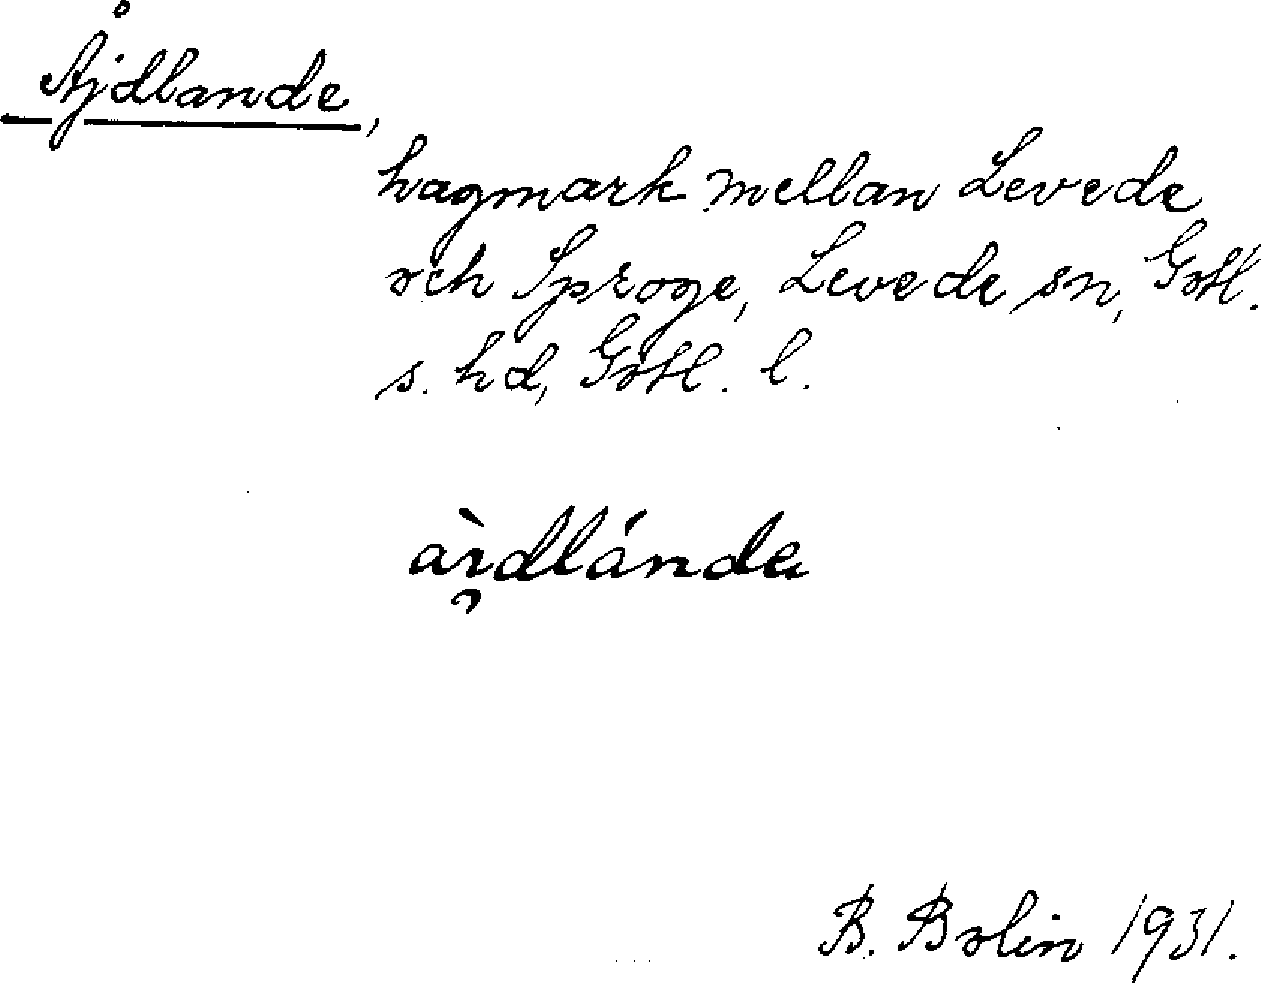 Åjdlande,
hagmark mellan Levede
och Sproge, Levede sn, Gotl.
s. hd, Gotl. l.
B. Bolin 1931.